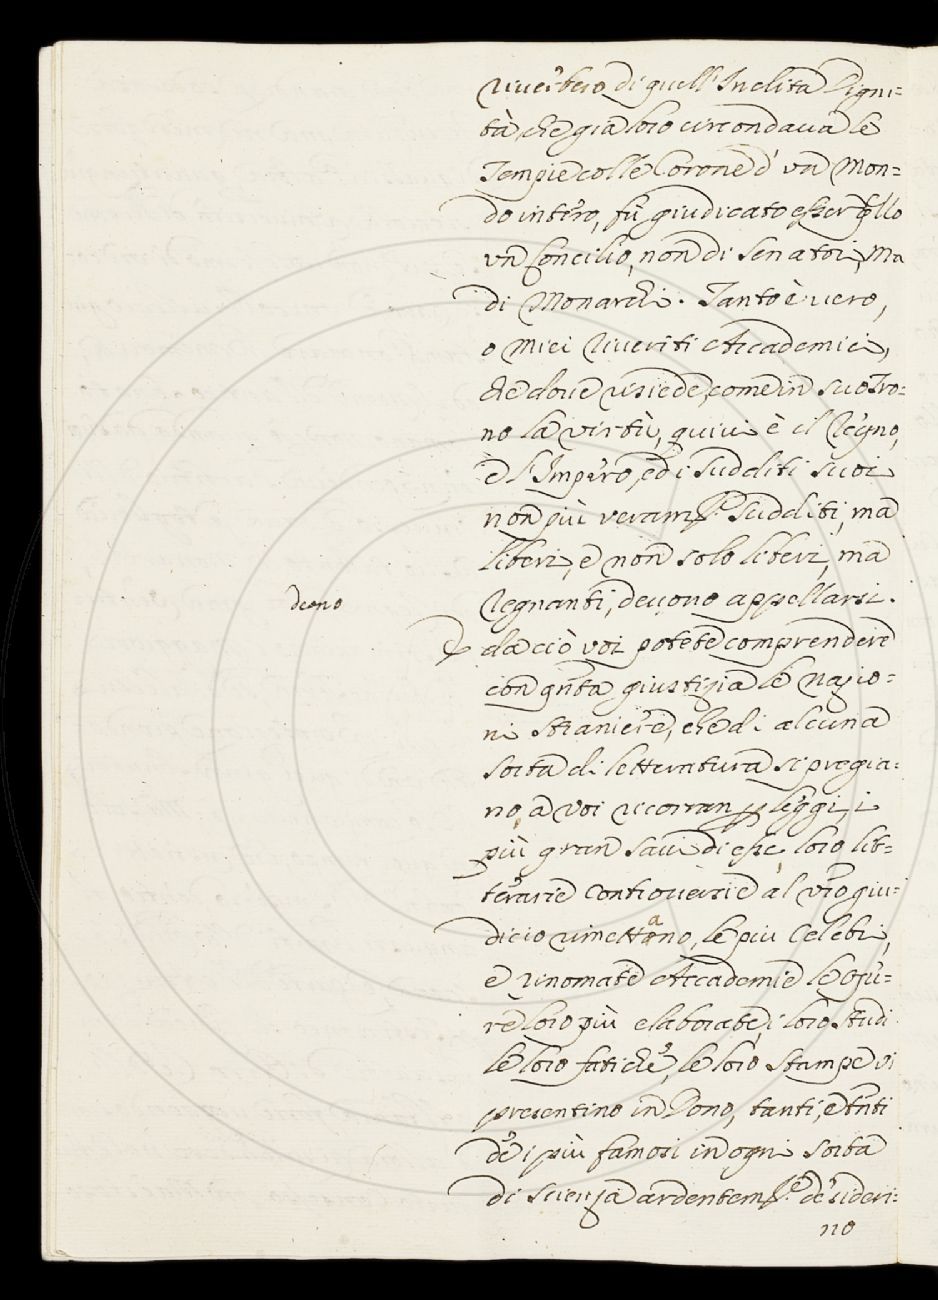 riuerbero di quell' Inclita Digni=
tà, che già loro circondaua le
Tempie colle Corone d' un Mon=
do intero, fù giudicato esser q͂llo
vn Concilio, non di Senatori, Ma
di Monarchi. Tanto è uero,
o Miei riueriti Accademici,
che doue risiede, come in suo Tro=
no la virtù, quiui è il Regno,
e l' Impero, ed i Sudditi suoi
non più veram.te Sudditi, ma
liberi, e non solo liberi, ma
regnanti, deuono appellarsi.
deono
da ciò voi potete comprendere
con qn͂ta giustizia le nazio=
ni straniere, che di alcuna
sorta di letteratura si pregia=
no, a voi ricorran p leggi, i
più gran saui di esse loro lit=
terarie controuersie al vr͂o giu=
dicio rimettano, le piu Celebri,
e rinomate Accademie le Opu=
re loro più elaborate, i loro studi
le loro fatiche, le loro stampe vi
presentino in Dono, tanti, e tn͂ti
de' i più famosi in ogni sorta
di scienza ardentem.te desideri=
no